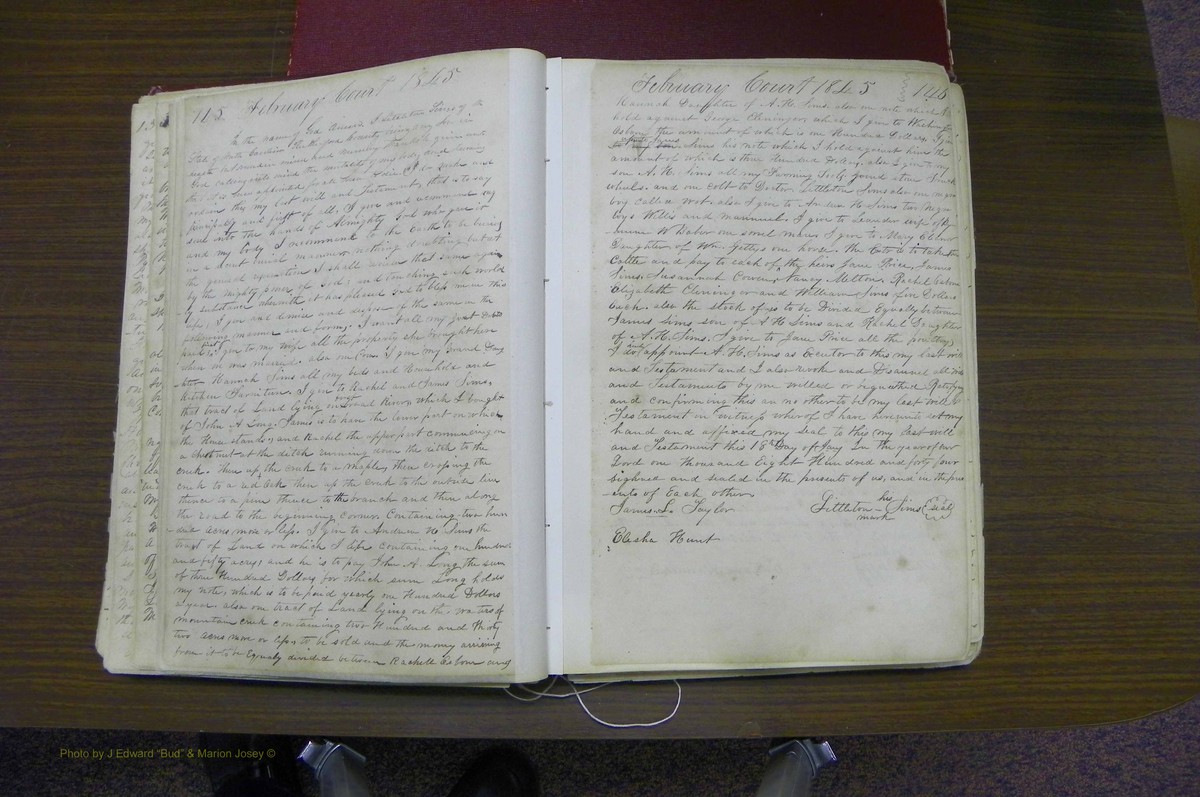 115 February Court 1845
In the name of God Amen I Littleton Sims of the
State of North Carolina Rutherford County being of
God calling into mind the mortality of my body and knowing
that it is once appointed for all men to die I do make and
ordain this my last will and Testament, that is to say
principly and first of all. I give and recommend my
soul into the hands of Almighty God who gave it
and my body I recommend to the Earth to be buried
in a decent manner nothing doubting but at
the general I shall receive that same again
by the mighty power of God, and touching such world
ly substance wherewith it has pleased God to bless me in this
life, I give and demise and dispose of the same in the
following manner and form, I want all my Just Debts
paid, I give to my wife all the property she brought here
when we was married. also one Cow. I give my Grand Daug
hter Hannah Sims all my beds and Household and
Kitchen Furniture. I give to Rachel and James Sims,
that tract of Land lying on Broad River which I bought
of John A Long. James is to have the lower part on which
the House stands, and Rachel the upper part commencing on
a chestnut at the ditch running down the ditch to the
creek. then up the creek to a maple, then crossing the
creek to a then up the creek to the outside line
thence to a pine thence to the branch and then along
the road to the beginning corner. Containing two hun
dred acres more or less. I give to Andrew H. Sims the
tract of Land on which I life containing one hundred
and fifty acres, and he is to pay John A. Long the sum
of three Hundred Dollars for which sum Long holds
my note, which is to be paid yearly one Hundred Dollars
a year. also one tract of Land lying on the waters of
mountain creek containing two Hundred and thirty
two acres more or less, to be sold and the money arriseing
from it to be Equaly divided between Rachell Osbour and
February Court 1845 116
Hannah Daughter of A. H. Sims. also one note which I
hold against George Clininger which I give to
Osbour the amount of which is one Hundred Dollars. I give
Sims his note which I hold against him the
amount of which is three Hundred Dollars, also I give to my
son A. H. Sims all my Farming Tools
wheels. and one colt to Doctor Littleton Sims also one negro
boy called also I give to Andrew H Sims two Negro
boys Willis and manuel. I give to Leander wife of
W Daber one sorrel mare. I give to Mary
Daughter of Wm. Gettys one horse. the Exetor is to take the
Cattle and pay to each of the heirs Jane Price, James
Sims, Susannah Nancy Melton, Rachel Osbour
Elizabeth Clininger and William Sims five Dollars
Each. also the stock of to be Divided Equely between
James Sims son of A H Sims and Rachel Daughter
of A. H. Sims. I give to Jane Price all the poultry,
I do appoint A. H. Sims as Executor to this my last will
and Testament and I also revoke and Disannul all
and Testaments by me willed or bequethed Ratifying
and confirming this an no other to be my last will &
Testament in witness whereof I have hereunto set my
hand and affixed my seal to this my last will
and Testament this 18th Day of In the year of our
Lord one thousand Eight Hundred and forty four
Signed and sealed in the presents of us, and in the pres
ents of Each other,
James L. Taylor Littleton his mark Sims (seal)
Elisha Hunt
Photo by J Edward "Bud" & Marion Josey ©